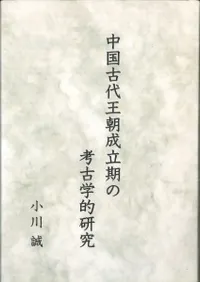 中国古代王朝成立期の
考古学的研究
小川誠